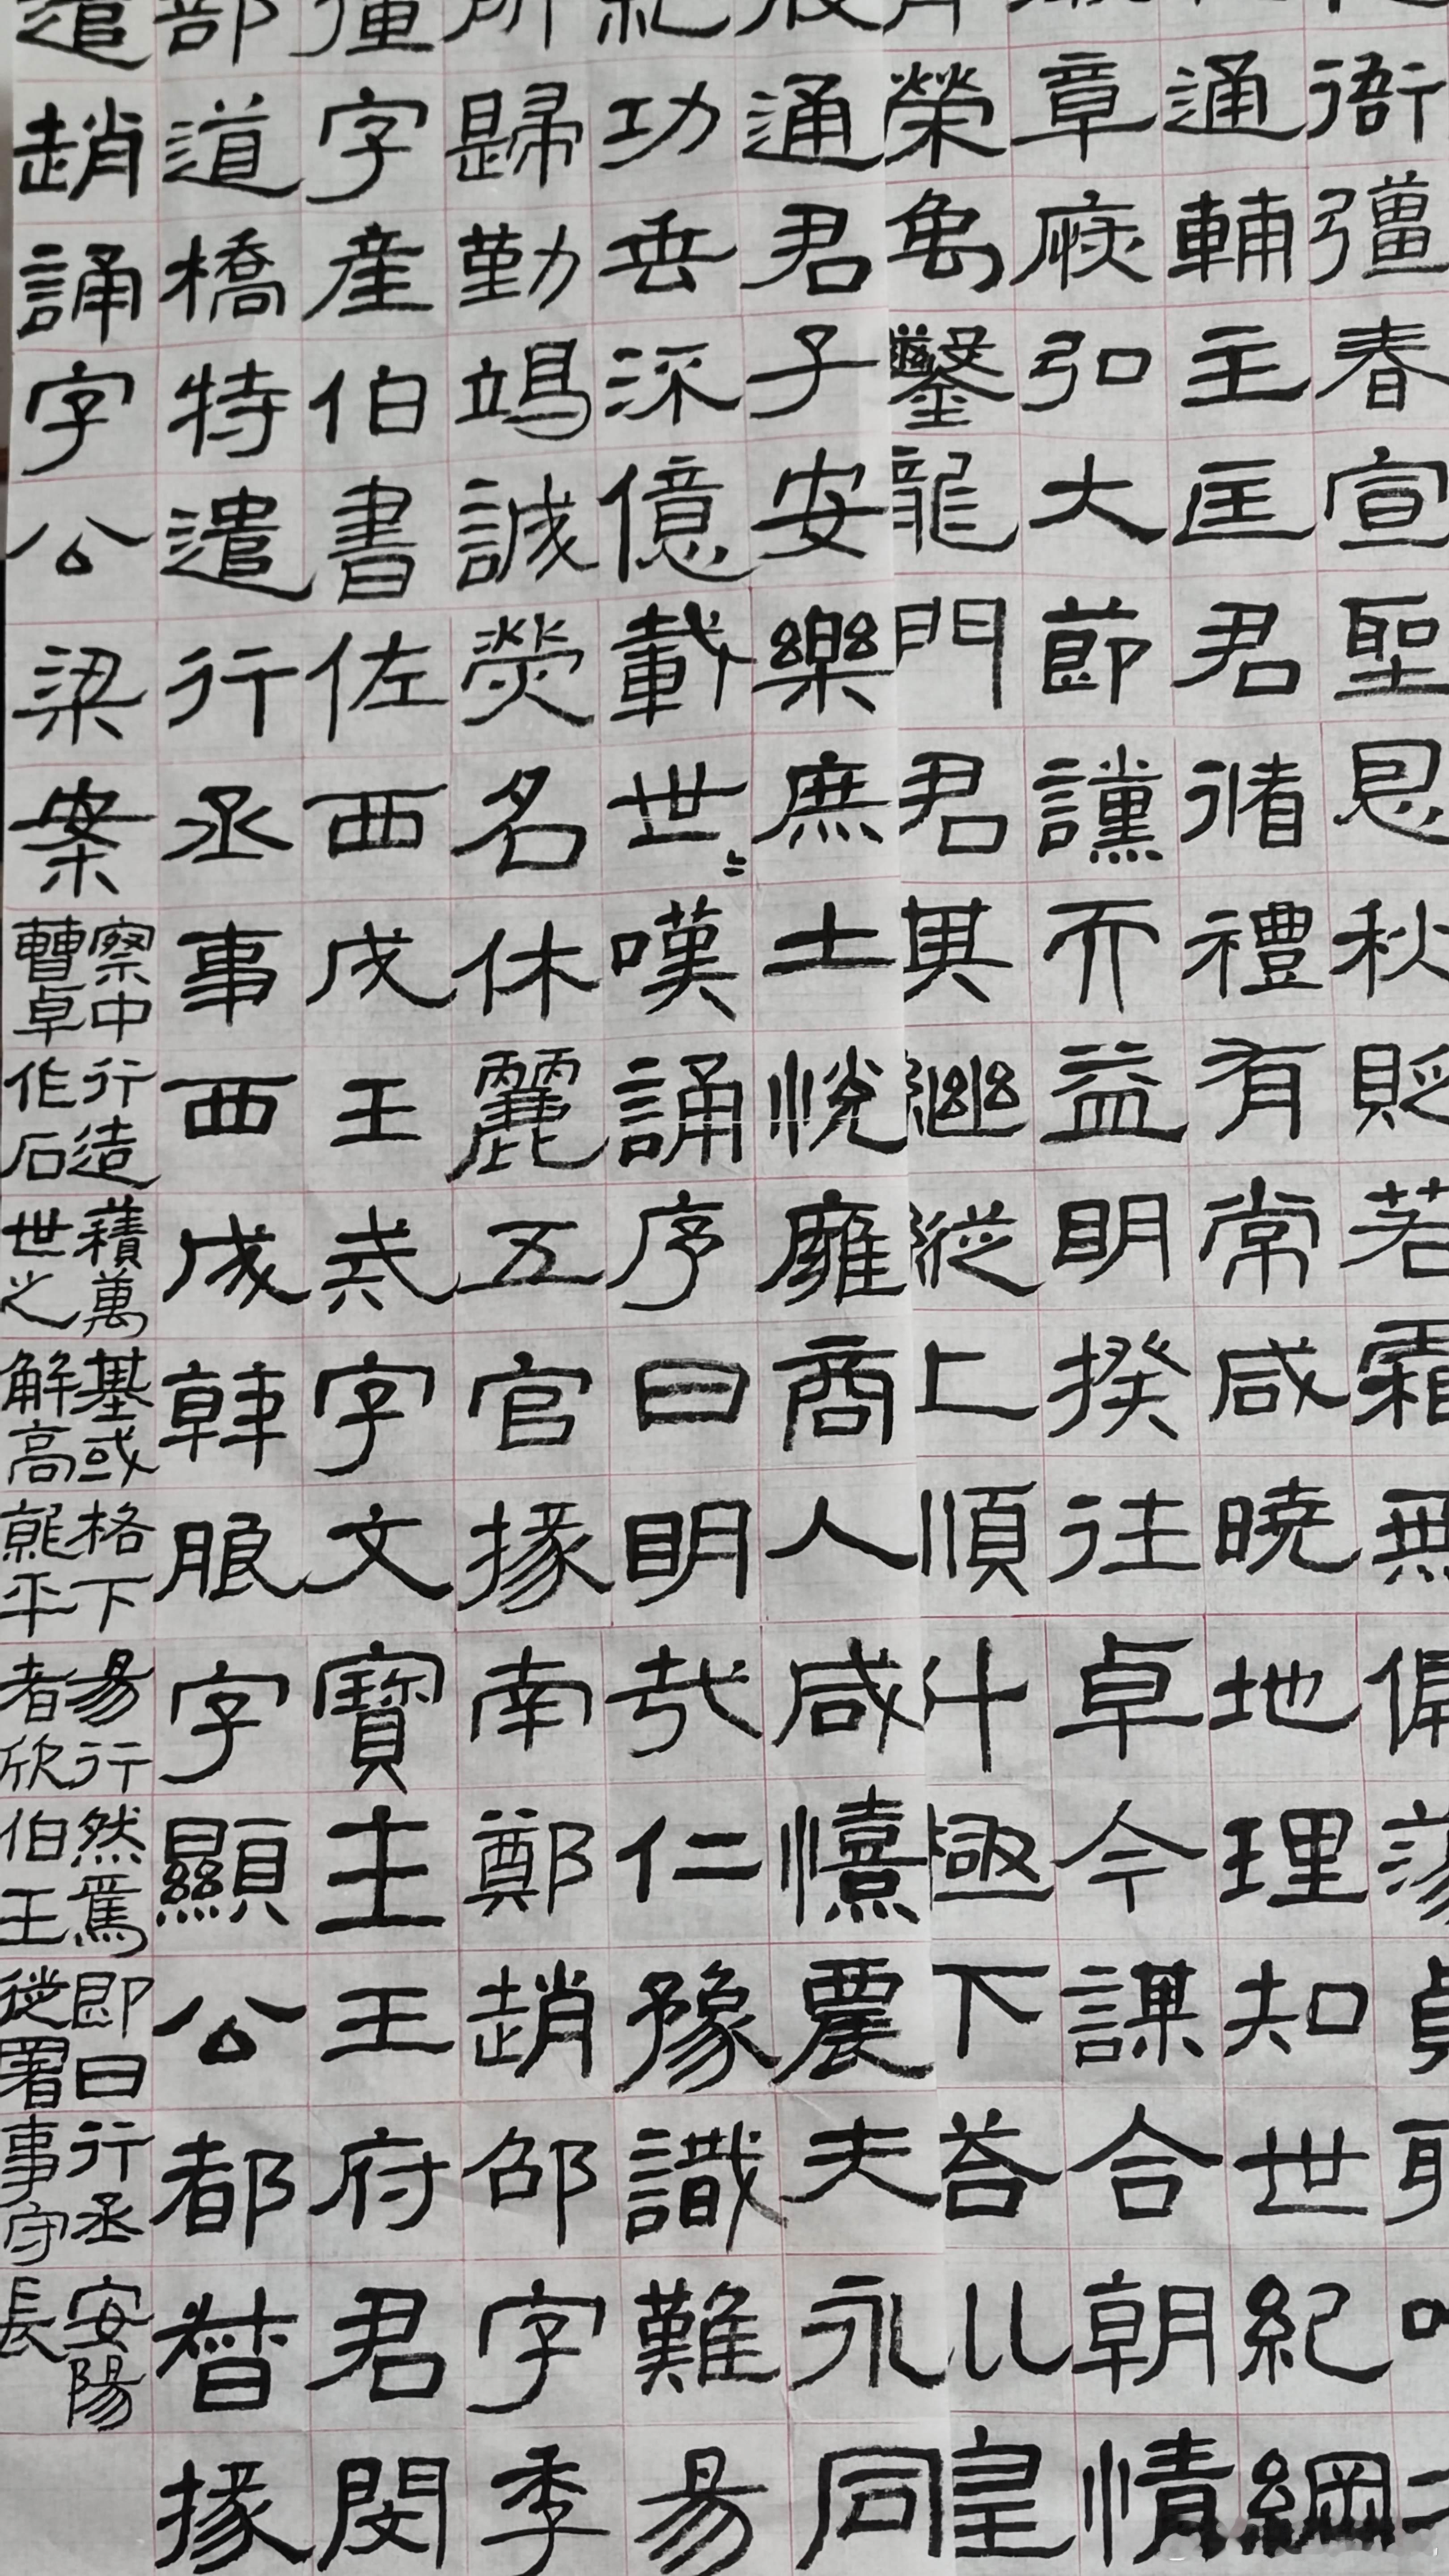 衙彊春宣聖恩秋貶若霜無偏蕩貞
通輔主匡君循禮有常咸曉地理知世紀綱
章厥弘大節讜而益明揆往卓今謀合朝情
榮禹鑿龍門君其繼縱上順斗極下荅巛皇
通君子安樂庶士悅雍商人咸憘農夫永同
紀功垂流億載世〻嘆誦序曰明哉仁豫識難易
所歸勤竭誠榮名休麗五官掾南鄭趙邵字季
字產伯書佐西成王戒字文寶主王府君閔
部道橋特遣行丞事西成韓朖字顯公都督掾
遣趙誦字公梁案察中曹卓行造作石積萬世之基或解高格下就平易行者欣然焉伯王即日徙署行丞事守安陽長